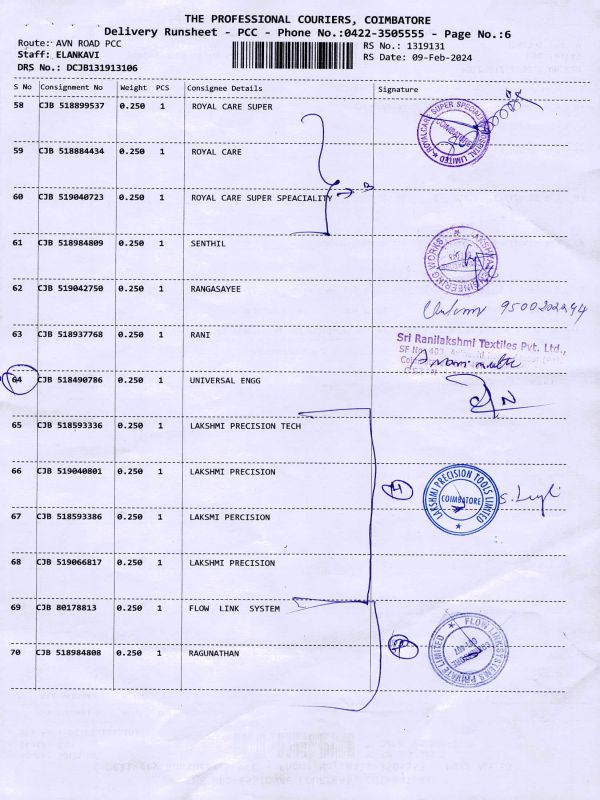 THE PROFESSIONAL COURIERS, COIMBATORE
Delivery Runsheet - PCC - Phone No.:0422-3505555 - Page No.:6
Route: AVN ROAD PCC
RS No.: 1319131
Staff: ELANKAVI
RS Date: 09-Feb-2024
DRS No.: DCJB131913106
S No Consignment No Weight PCS Consignee Details Signature
58 CJB 518899537 0.250 1 ROYAL CARE SUPER
COIMBATORE
59 CJB 518884434 0.250 1 ROYAL CARE
60 CJB 519040723 0.250 1 ROYAL CARE SUPER SPEACIALITY
61 CJB 518984809 0.250 1 SENTHIL
62 CJB 519042750 0.250 1 RANGASAYEE
9500202294
63 CJB 518937768 0.250 1 RANI
Sri Ranilakshmi Textiles Pvt. Ltd.,
64 CJB 518490786 0.250 1 UNIVERSAL ENGG
65 CJB 518593336 0.250 1 LAKSHMI PRECISION TECH
66 CJB 519040801 0.250 1 LAKSHMI PRECISION
LAKSHMI PRECISION TOOLS LIMITED
COIMBATORE
67 CJB 518593386 0.250 1 LAKSMI PERCISION
68 CJB 519066817 0.250 1 LAKSHMI PRECISION
69 CJB 80178813 0.250 1 FLOW LINK SYSTEM
FLOW LINK SYSTEMS PRIVATE LIMITED
70 CJB 518984808 0.250 1 RAGUNATHAN